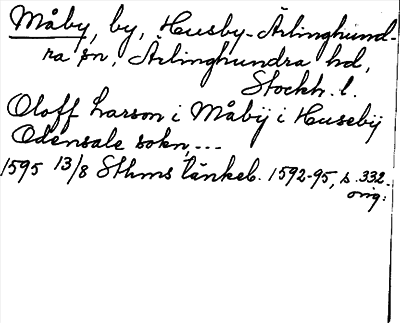 Måby, by, Husby-Ärlinghund-
ra sn, Ärlinghundra hd,
Stockh. l.
Oloff Larson i Måbÿ i Husebÿ
Odensale sokn, ---
1595 13/8 Sthms tänkeb. 1592-95, s. 332.
orig.